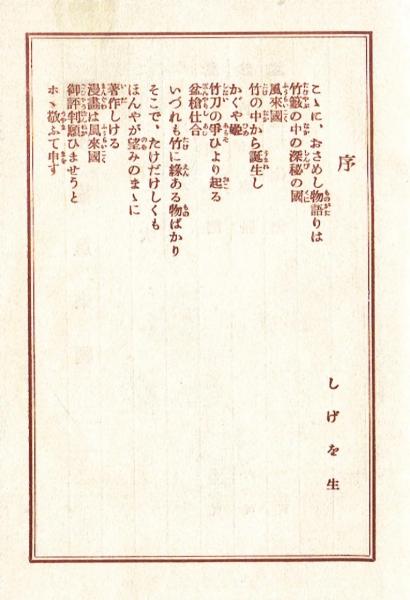 序
しげを生
こゝに、おさめし物語りは
竹籔の中の深秘の國
風來國
竹の中から誕生し
かぐや姫
竹刀の爭ひより起る
盆槍仕合
いづれも竹に緣ある物ばかり
そこで、たけだけしくも
ほんやが望みのまゝに
著作しける
漫畫は風來國
御評判願ひませうと
ホゝ敬ふて申す